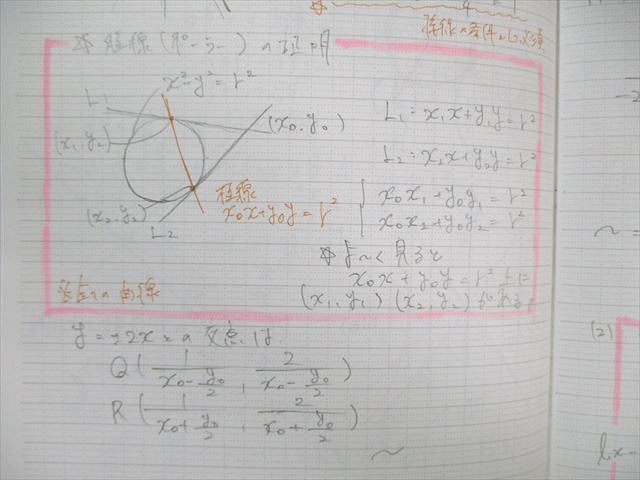 ☆ 極線(ポーラー)の証明
x²-y²=r²
L₁
(x₁,y₂)
(x₀,y₀)
(x₂,y₂)
L₂
極線
x₀x+y₀y=r²
L₁=x₁x+y₁y=r²
L₂=x₂x+y₂y=r²
x₀x₁+y₀y₁=r²
x₀x₂+y₀y₂=r²
☆ よ~く見ると
x₀x+y₀y=r²上に
(x₁,y₁)(x₂,y₂)がある
y=±2xとの交点は.
Q(1/(x₀-y₀/2), 2/(x₀-y₀/2))
R(1/(x₀+y₀/2), 2/(x₀+y₀/2))
(2)